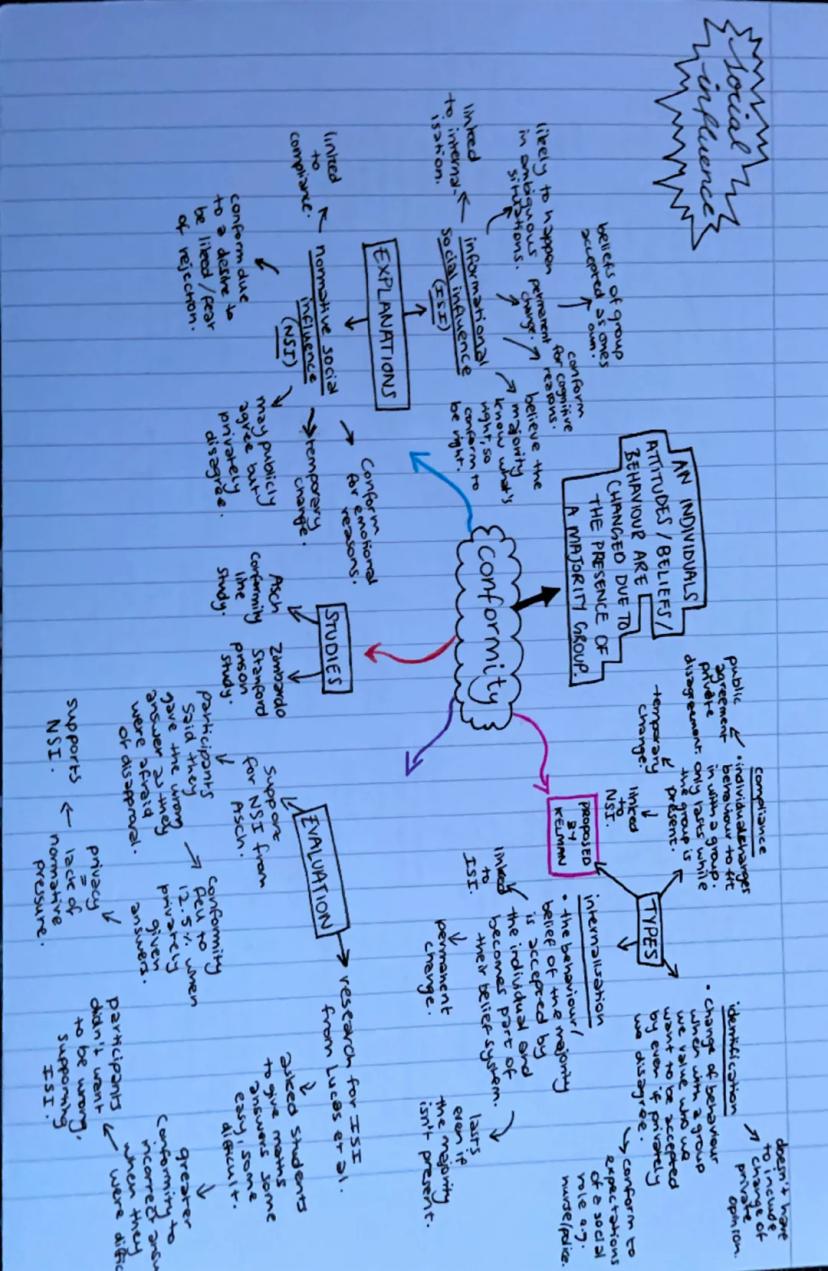 Social
influence
AN INDIVIDUALS
ATTITUDES/BELIEFS/
BEHAVIOUR ARE
CHANGED DUE TO
THE PRESENCE OF
A MAJORITY GROUP.
conformity
EXPLANATIONS
informational
social influence
(ISI)
linked
to internal-
isation.
likely to happen
in ambiguous
situations.
permanent
change.
beliefs of group
accepted as ones
own.
conform
for cognitive
reasons.
believe the
majority
know what's
right, so
conform to
be right.
normative social
influence
(NSI)
linked
to
compliance.
conform due
to a desire to
be liked/fear
of rejection.
may publicly
agree but
privately
disagree.
temporary
change.
Conform
for emotional
reasons.
STUDIES
Asch
conformity
line
study.
Zimbardo
Stanford
prison
study.
TYPES
PROPOSED
BY
KELMAN
compliance
• individual changes
behaviour to fit
in with a group.
only lasts while
the group is
present.
public
agreement
private
disagreement
temporary
change.
linked
to
NSI.
identification
• change of behaviour
when with a group
we value who we
want to be accepted
by even if privately
we disagree.
doesn't have
to include
change of
private
opinion.
conform to
expectations
of a social
role e.g.
nurse/police.
internalisation
• the behaviour/
belief of the majority
is accepted by
the individual and
becomes part of
their belief system.
linked
to
ISI.
permanent
change.
lasts
even if
the majority
isn't present.
EVALUATION
Support
for NSI from
Asch.
participants
said they
gave the wrong
answer as they
were afraid
of disapproval.
Conformity
fell to
12.5% when
privately
given
answers.
privacy
=
lack of
normative
pressure.
supports
NSI.
research for ISI
from Lucas et al.
asked students
to give maths
answers some
easy, some
difficult.
greater
Conformity to
incorrect answ
when they
were diffic
participants
didn't want
to be wrong,
supporting
ISI.